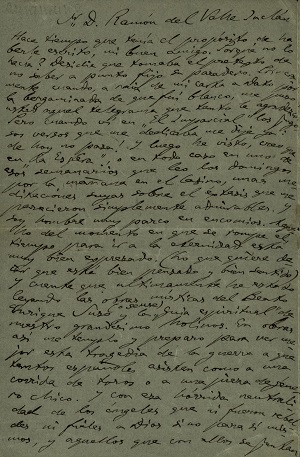 Sr. D. Ramón del Valle Inclán
Hace tiempo que tenía el propósito de ha
berle escrito, mi buen amigo. Porqué no lo
hacía? Decíale que tomaba el pretexto de
no saber a punto fijo su paradero. Última
mente cuando, a raíz de mi carta a
la de que fui blanco, me puso
usted aquel telegrama que tanto le agradecí
Pero cuando ví en "El Imparcial" los
sos versos que me dedicaba me dije ya:
de hoy no pasa! Y luego he visto, creo
en "La Esfera", o en todo caso en uno de
esos semanarios que leo los domingos
por la mañana en el Casino, unas me
ditaciones suyas sobre el éxtasis que me
parecieron simplemente admirables. Y
soy hombre muy parco en encomios. Aque
llo del momento en que se rompe el
tiempo para ir a la eternidad está
muy bien expresado. (No quiere de
cir que esté bien pensado y bien sentido?)
Y cuente que últimamente he estado
leyendo las obras místicas del Beato
Enrique Susó y la Guía espiritual de
nuestro grandísimo Molinos. En obras
así me templo y preparo para ver me
jor esta tragedia de la guerra a que
tantos españoles asisten como a una
corrida de toros o a una pieza de géne
ro chico. Y con esa horrible neutrali
dad de los ángeles que ni fueron rebel
des ni fieles a Dios sino para sí mis
mos, y aquellos que con ellos se juntan